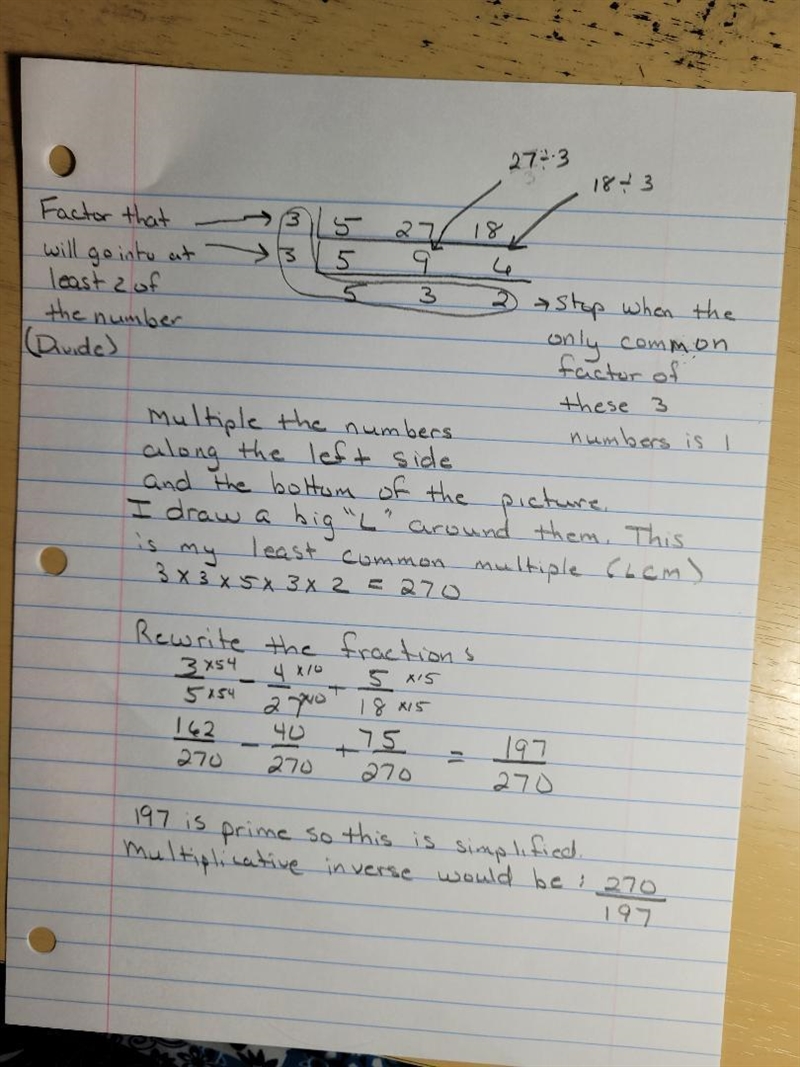 27÷3
18÷3
Factor that → 3 | 5 27 18
will go into at → 3 | 5 9 6
least 2 of
5 3 2 → Stop when the
the number
only common
(Divide)
factor of
these 3
numbers is 1
Multiple the numbers
along the left side
and the bottom of the picture.
I draw a big "L" around them. This
is my least common multiple (LCM)
3 x 3 x 5 x 3 x 2 = 270
Rewrite the fractions
3 x54 / 5 x54 - 4 x10 / 27 x10 + 5 x15 / 18 x15
162/270 - 40/270 + 75/270 = 197/270
197 is prime so this is simplified.
Multiplicative inverse would be : 270/197